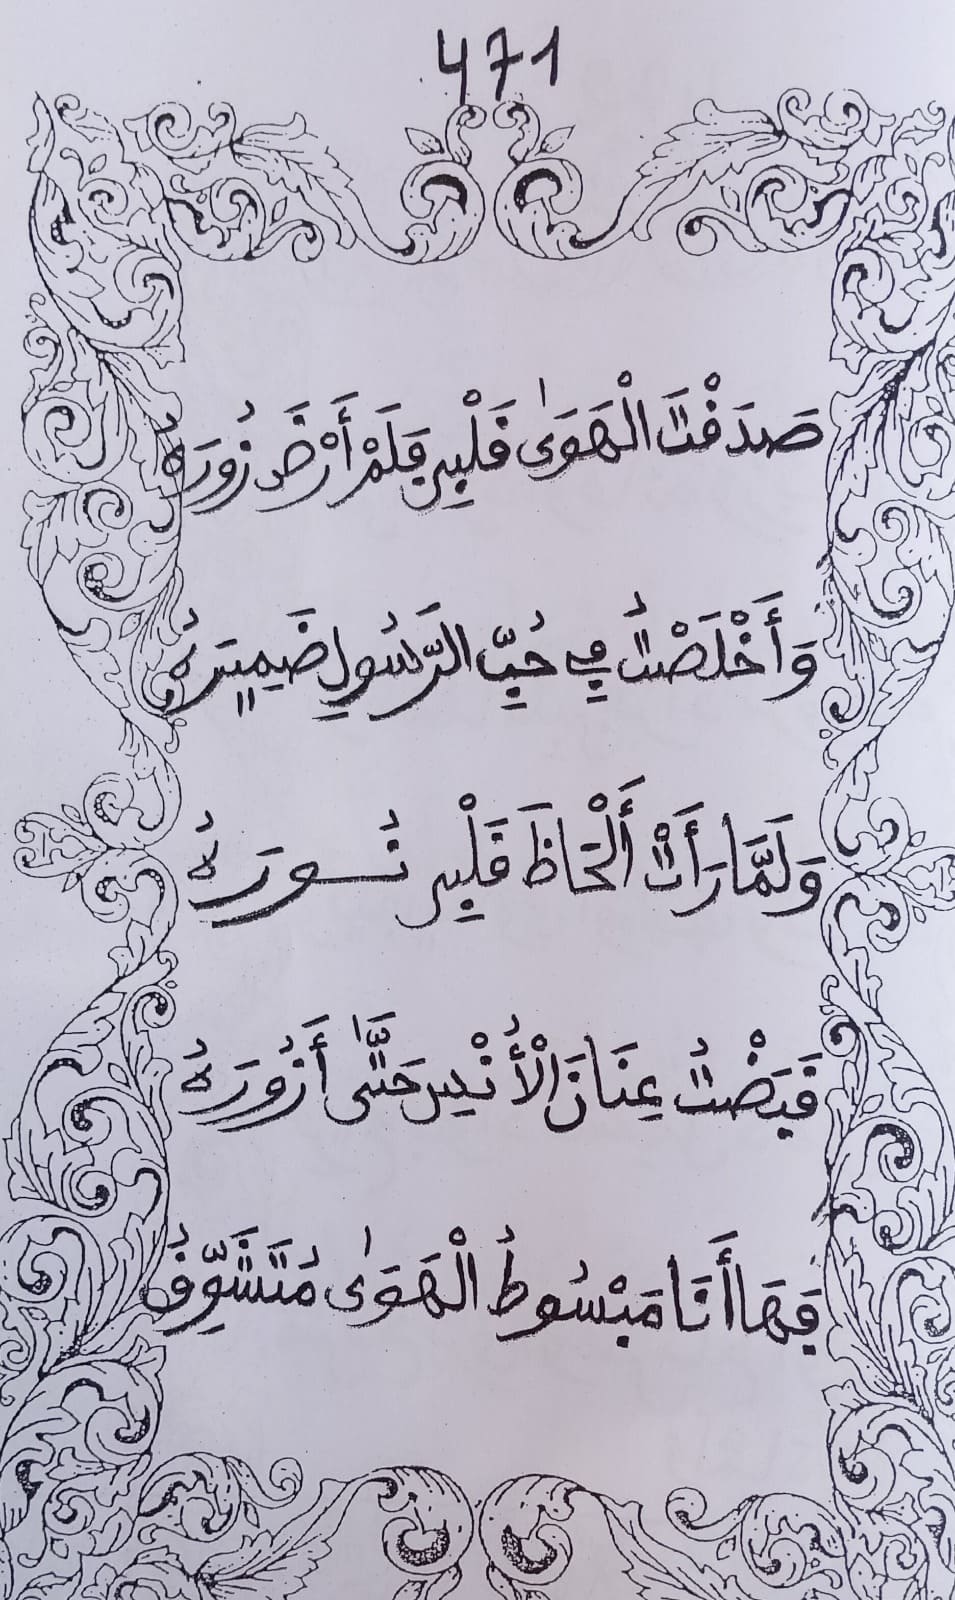 471
صَدَقْتَ الْهَوَىٰ قَلْبِي فَلَمْ أَرْضَ زُورَهُ
وَأَخْلَصْتُ فِي حُبِّ الرَّسُولِ ضَمِيرَهُ
وَلَمَّا رَأَتْ أَلْحَاظَ قَلْبِي نُورَهُ
قَبَضْتُ عِنَانَ الْأُنْسِ حَتَّىٰ أَزُورَهُ
فَهَا أَنَا مَبْسُوطُ الْهَوَىٰ مُتَشَوِّقُ